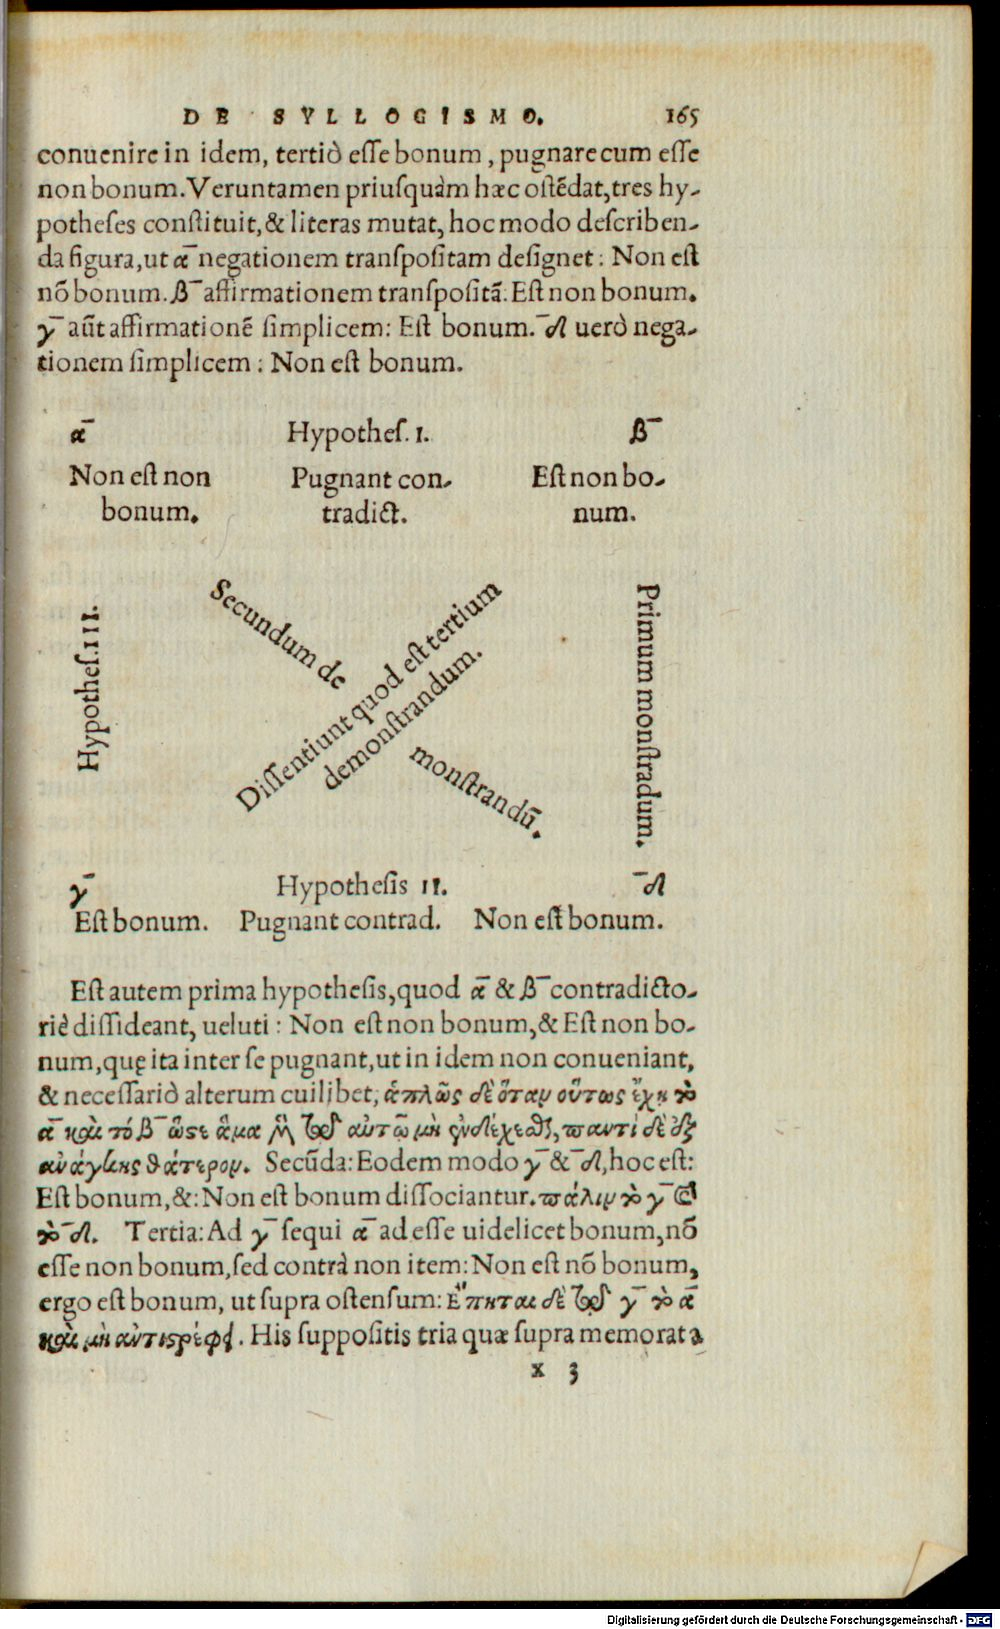 DE SYLLOGISMO. 165
conuenire in idem, tertiò eſſe bonum, pugnare cum eſſe
non bonum. Veruntamen priuſquàm hæc oſtēdat, tres hy-
potheſes conſtituit, & literas mutat, hoc modo deſcriben-
da figura, ut α̅ negationem tranſpoſitam deſignet: Non eſt
nō bonum. β̅ affirmationem tranſpoſitā: Eſt non bonum.
γ̅ aūt affirmationē ſimplicem: Eſt bonum. δ̅ uerò nega-
tionem ſimplicem: Non eſt bonum.
α̅ Hypotheſ. I. β̅
Non eſt non Pugnant con- Eſt non bo-
bonum. tradict. num.
Hypotheſ. III.
Secundum de
monſtrandū.
Diſſentiunt quod eſt tertium
demonſtrandum.
Primum monſtradum.
γ̅ Hypotheſis II. δ̅
Eſt bonum. Pugnant contrad. Non eſt bonum.
Eſt autem prima hypotheſis, quod α̅ & β̅ contradicto-
riè diſſideant, ueluti: Non eſt non bonum, & Eſt non bo-
num, quę ita inter ſe pugnant, ut in idem non conueniant,
& neceſſariò alterum cuilibet, ἁπλῶς δὲ ὅταν οὕτως ἔχῃ τὸ
α̅ καὶ τό β̅ ὥστε ἅμα μὴ τῷ αὐτῷ μὴ ἐνδέχεσθαι, παντὶ δὲ ἐξ
ἀνάγκης θάτερον. Secūda: Eodem modo γ̅ & δ̅, hoc eſt:
Eſt bonum, &: Non eſt bonum diſſociantur. πάλιν τὸ γ̅ καὶ
τὸ δ̅. Tertia: Ad γ̅ ſequi α̅ ad eſſe uidelicet bonum, nō
eſſe non bonum, ſed contrà non item: Non eſt nō bonum,
ergo eſt bonum, ut ſupra oſtenſum: Ἕπηται δὲ τῷ γ̅ τὸ α̅
καὶ μὴ ἀντιστρέφει. His ſuppoſitis tria quæ ſupra memorata
x 3
Digitalisierung gefördert durch die Deutsche Forschungsgemeinschaft - DFG